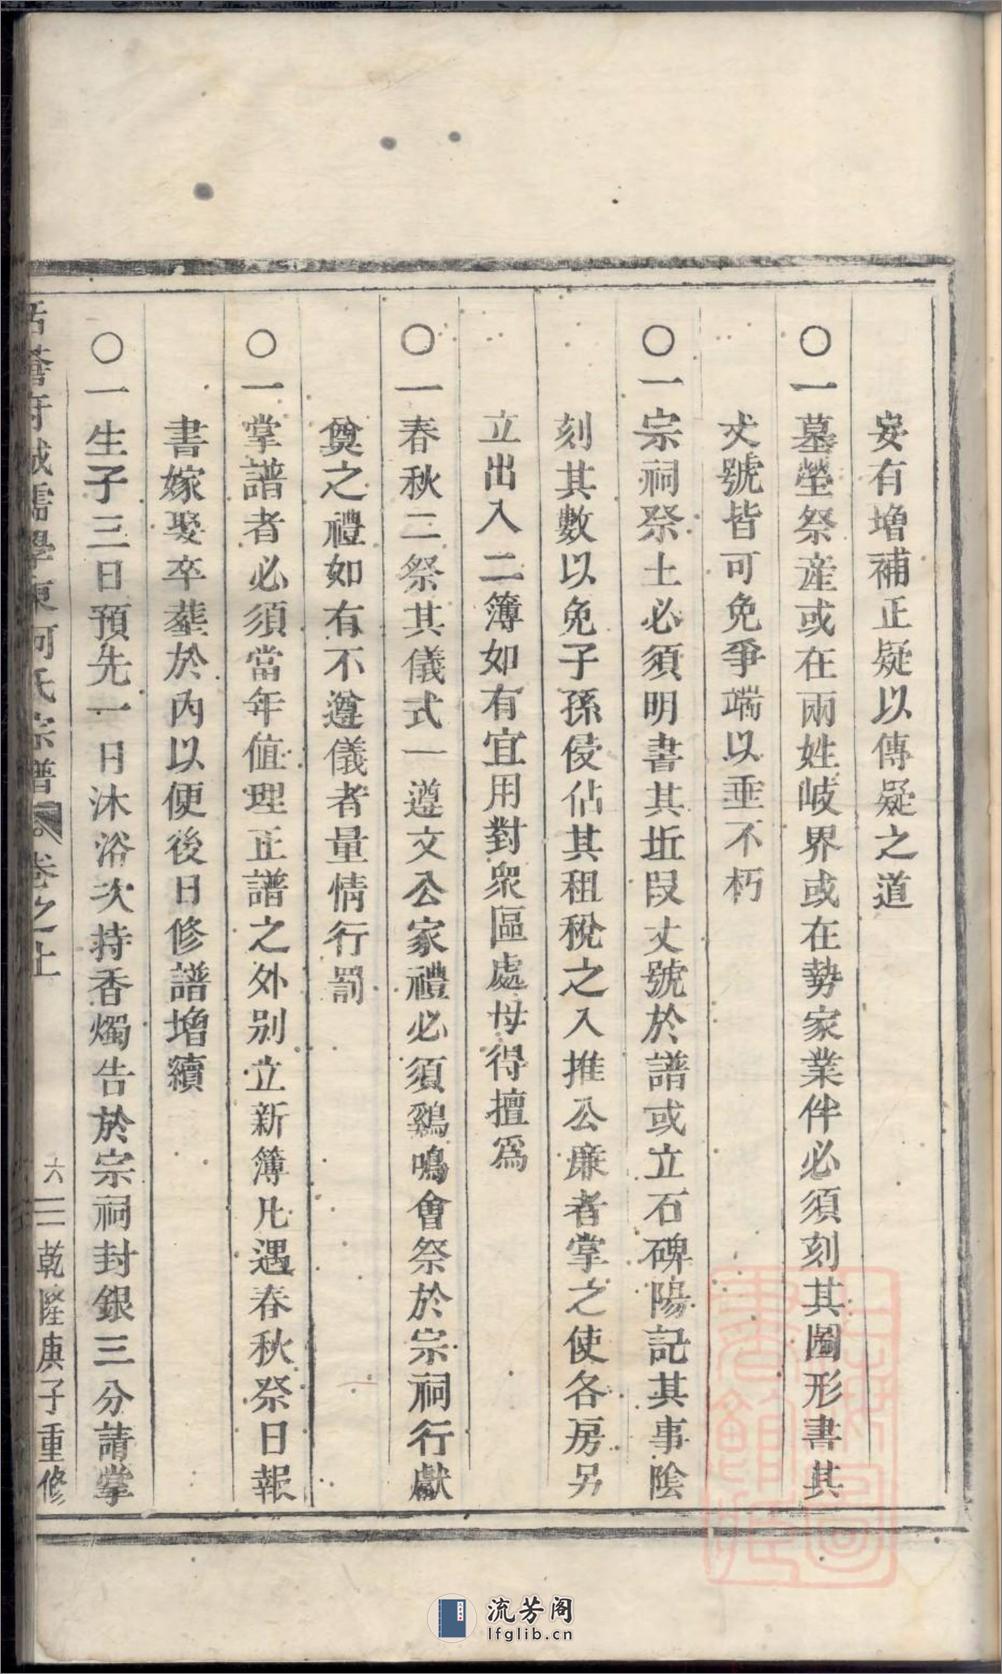 妄有增補正疑以傳疑之道
○一墓塋祭產或在兩姓岐界或在勢家業件必須刻其圖形書其
丈號皆可免爭端以垂不朽
○一宗祠祭土必須明書其坵段丈號於譜或立石碑陽記其事陰
刻其數以免子孫侵佔其租稅之入推公廉者掌之使各房另
立出入二簿如有宜用對衆區處毋得擅爲
○一春秋二祭其儀式一遵文公家禮必須鷄鳴會祭於宗祠行獻
奠之禮如有不遵儀者量情行罰
○一掌譜者必須當年值理正譜之外別立新簿凡遇春秋祭日報
書嫁娶卒塟於內以便後日修譜增續
○一生子三日預先一日沐浴次持香燭告於宗祠封銀三分請掌
括蒼府城儒學東何氏宗譜 卷之上 六 三 乾隆庚子重修
流芳阁
lfglib.cn